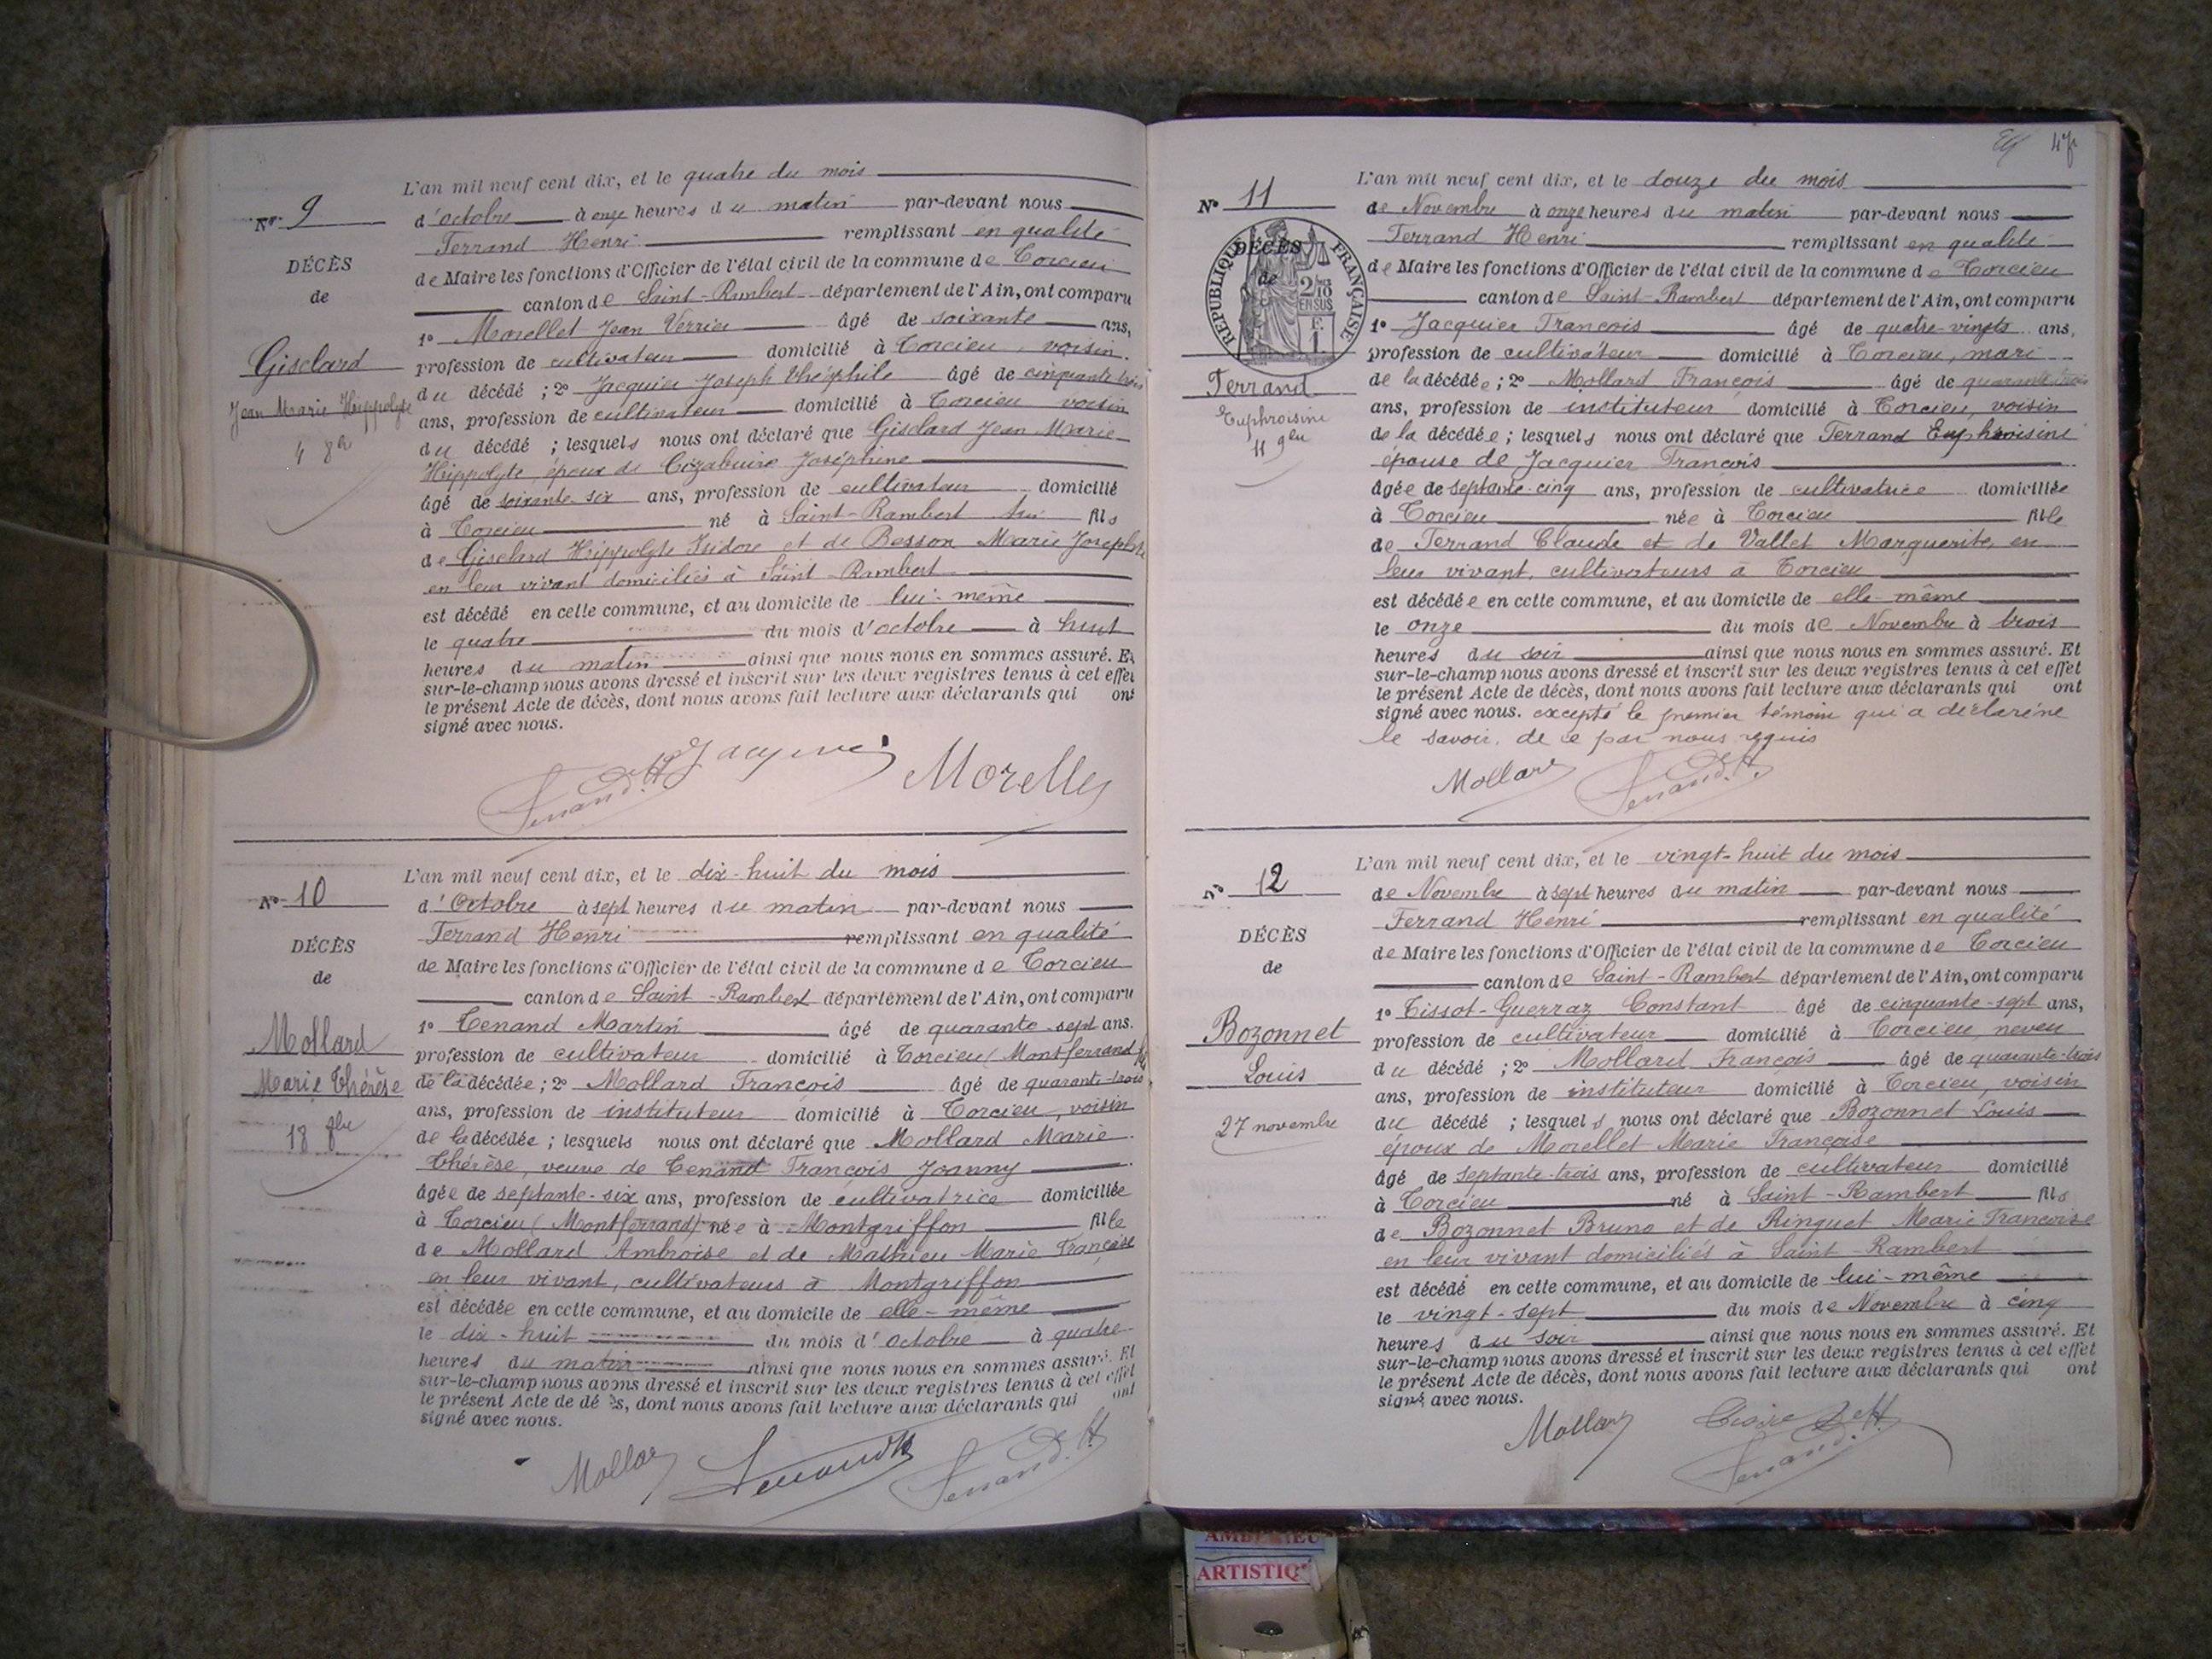 L'an mil neuf cent dix, et le quatre du mois
N° 9
d'octobre à onze heures du matin par-devant nous
Ferrand Henri remplissant en qualité
DÉCÈS
de Maire les fonctions d'Officier de l'état civil de la commune de Torcieu
de
canton de Saint-Rambert département de l'Ain, ont comparu
1° Morellet Jean Verrier âgé de soixante ans,
Gisclard
profession de cultivateur domicilié à Torcieu, voisin
Jean Marie Hippolyte
du décédé ; 2° Jacquier Joseph Théophile âgé de cinquante-trois
ans, profession de cultivateur domicilié à Torcieu voisin
4 8bre
du décédé ; lesquels nous ont déclaré que Gisclard Jean Marie
Hippolyte, époux de Cizabuire Joséphine
âgé de soixante-six ans, profession de cultivateur domicilié
à Torcieu né à Saint-Rambert fils
de Gisclard Hippolyte Isidore et de Besson Marie Josephte
en leur vivant domiciliés à Saint-Rambert
est décédé en cette commune, et au domicile de lui-même
le quatre du mois d'octobre à huit
heures du matin ainsi que nous nous en sommes assuré. Et
sur-le-champ nous avons dressé et inscrit sur les deux registres tenus à cet effet
le présent Acte de décès, dont nous avons fait lecture aux déclarants qui ont
signé avec nous.
Ferrand. H. Jacquier Morellet
L'an mil neuf cent dix, et le dix-huit du mois
N° 10
d'Octobre à sept heures du matin par-devant nous
Ferrand Henri remplissant en qualité
DÉCÈS
de Maire les fonctions d'Officier de l'état civil de la commune de Torcieu
de
canton de Saint-Rambert département de l'Ain, ont comparu
1° Tenand Martin âgé de quarante-sept ans.
Mollard
profession de cultivateur domicilié à Torcieu (Montferrand)
Marie Thérèse
de la décédée ; 2° Mollard François âgé de quarante-trois
ans, profession de instituteur domicilié à Torcieu, voisin
18 8bre
de la décédée ; lesquels nous ont déclaré que Mollard Marie
Thérèse, veuve de Tenand François Joanny
âgée de septante-six ans, profession de cultivatrice domiciliée
à Torcieu (Montferrand) née à Montgriffon fille
de Mollard Ambroise et de Mathieu Marie Françoise
en leur vivant, cultivateurs à Montgriffon
est décédée en cette commune, et au domicile de elle-même
le dix-huit du mois d'octobre à quatre
heures du matin ainsi que nous nous en sommes assuré. Et
sur-le-champ nous avons dressé et inscrit sur les deux registres tenus à cet effet
le présent Acte de dé ès, dont nous avons fait lecture aux déclarants qui ont
signé avec nous.
Mollard Tenand Ferrand. H.
47
L'an mil neuf cent dix, et le douze du mois
N° 11
de Novembre à onze heures du matin par-devant nous
Ferrand Henri remplissant en qualité
RÉPUBLIQUE FRANÇAISE
2/10 EN SUS
F. 1
DÉCÈS
de Maire les fonctions d'Officier de l'état civil de la commune de Torcieu
de
canton de Saint-Rambert département de l'Ain, ont comparu
1° Jacquier François âgé de quatre-vingts ans,
profession de cultivateur domicilié à Torcieu, mari
Ferrand
de la décédée ; 2° Mollard François âgé de quarante-trois
Euphroisine
ans, profession de instituteur domicilié à Torcieu, voisin
11 9bre
de la décédée ; lesquels nous ont déclaré que Ferrand Euphroisine
épouse de Jacquier François
âgée de septante-cinq ans, profession de cultivatrice domiciliée
à Torcieu née à Torcieu fille
de Ferrand Claude et de Vallet Marguerite, en
leur vivant, cultivateurs à Torcieu
est décédée en cette commune, et au domicile de elle-même
le onze du mois de Novembre à trois
heures du soir ainsi que nous nous en sommes assuré. Et
sur-le-champ nous avons dressé et inscrit sur les deux registres tenus à cet effet
le présent Acte de décès, dont nous avons fait lecture aux déclarants qui ont
signé avec nous. excepté le premier témoin qui a déclaré ne
le savoir, de ce par nous requis
Mollard Ferrand. H.
L'an mil neuf cent dix, et le vingt-huit du mois
N° 12
de Novembre à sept heures du matin par-devant nous
Ferrand Henri remplissant en qualité
DÉCÈS
de Maire les fonctions d'Officier de l'état civil de la commune de Torcieu
de
canton de Saint-Rambert département de l'Ain, ont comparu
1° Tissot-Guerraz Constant âgé de cinquante-sept ans,
Bozonnet
profession de cultivateur domicilié à Torcieu, neveu
Louis
du décédé ; 2° Mollard François âgé de quarante-trois
ans, profession de instituteur domicilié à Torcieu, voisin
27 novembre
du décédé ; lesquels nous ont déclaré que Bozonnet Louis
époux de Morellet Marie Françoise
âgé de septante-trois ans, profession de cultivateur domicilié
à Torcieu né à Saint-Rambert fils
de Bozonnet Bruno et de Ringuet Marie Françoise
en leur vivant domiciliés à Saint-Rambert
est décédé en cette commune, et au domicile de lui-même
le vingt-sept du mois de Novembre à cinq
heures du soir ainsi que nous nous en sommes assuré. Et
sur-le-champ nous avons dressé et inscrit sur les deux registres tenus à cet effet
le présent Acte de décès, dont nous avons fait lecture aux déclarants qui ont
signé avec nous.
Mollard Ferrand. H.
AMBERIEU
ARTISTIQ